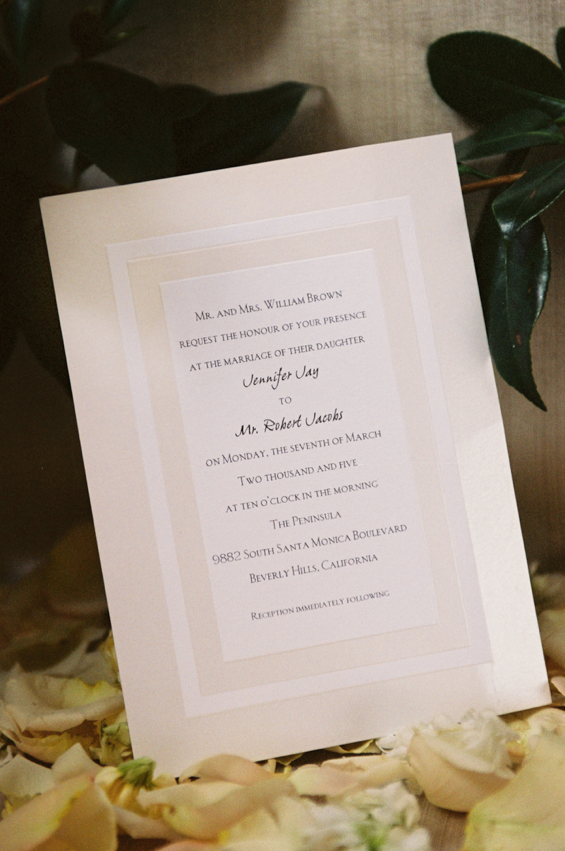 Mr. and Mrs. William Brown
request the honour of your presence
at the marriage of their daughter
Jennifer Jay
to
Mr. Robert Jacobs
on Monday, the seventh of March
Two thousand and five
at ten o'clock in the morning
The Peninsula
9882 South Santa Monica Boulevard
Beverly Hills, California
Reception immediately following